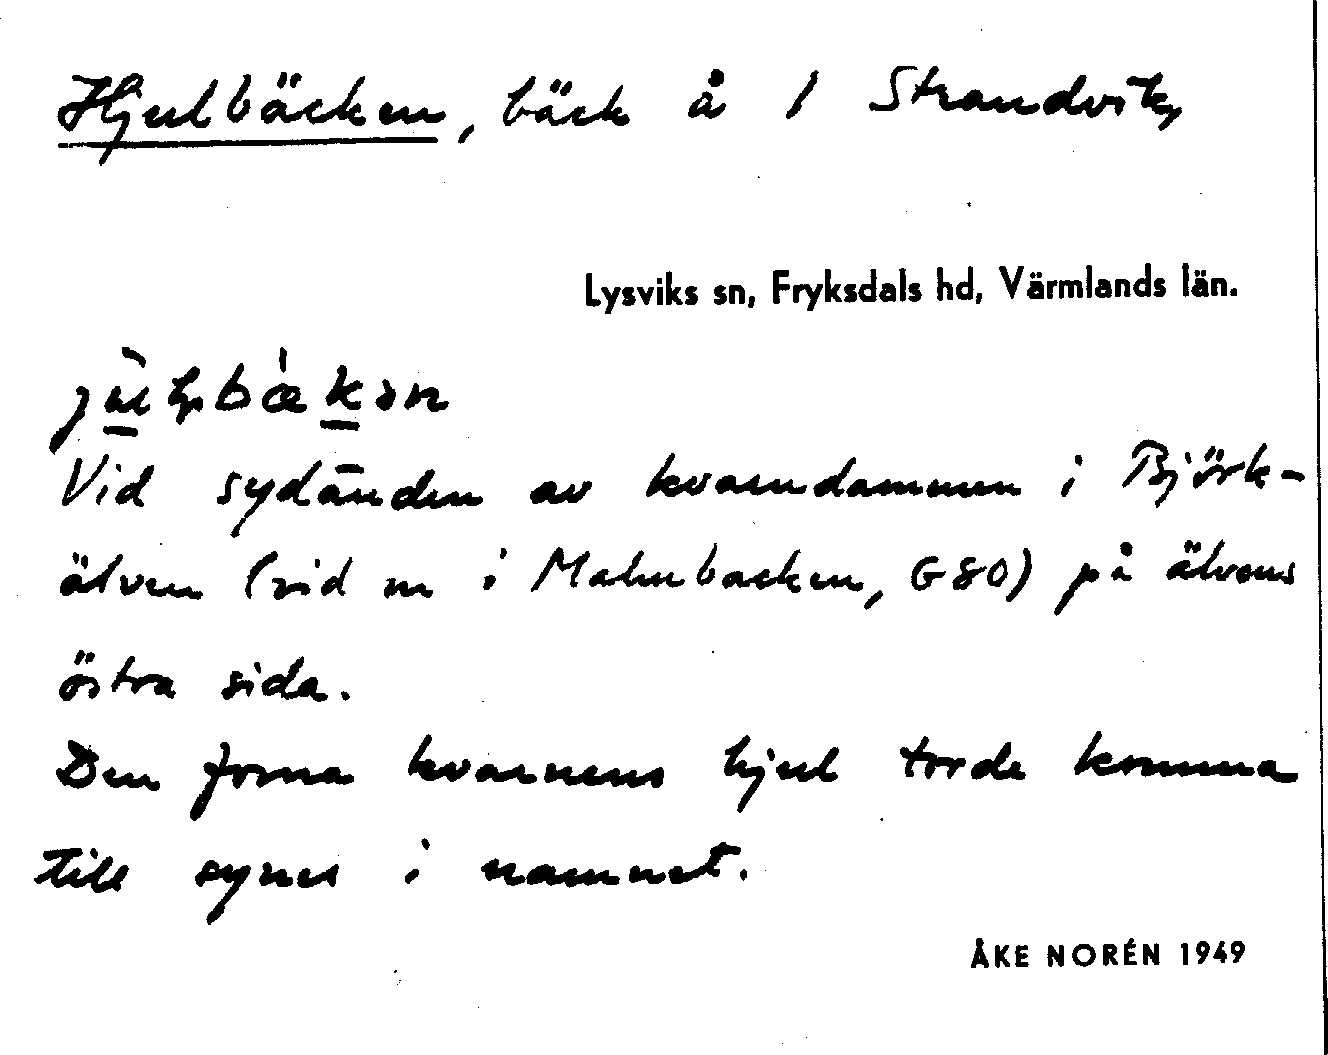 Hjulbäcken, bäck å 1 Strandvik,
Lysviks sn, Fryksdals hd, Värmlands län.
Vid sydänden av kvarndammen i Björk-
älven (vid m i Malmbacken, GSO) på älvens
östra sida.
Den forna kvarnens hjul torde komma
till synes i namnet.
ÅKE NORÉN 1949